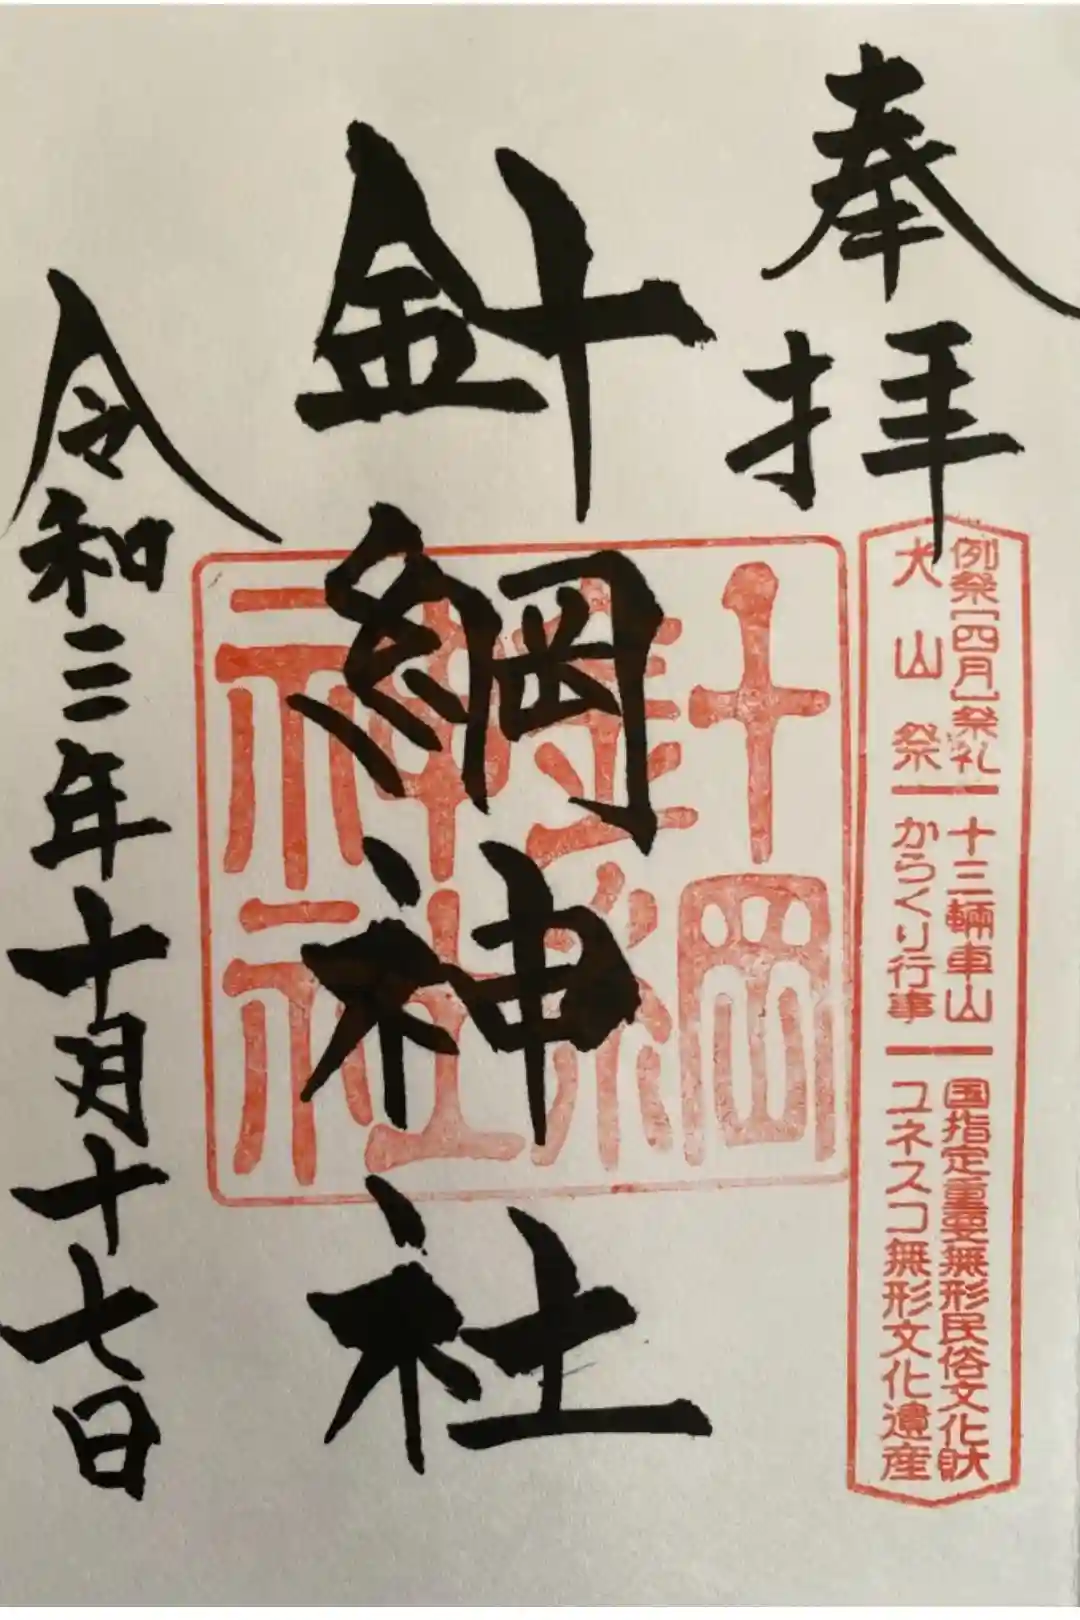 奉拝
例祭[四月]祭礼 十三輛車山 国指定重要無形民俗文化財
犬山祭 からくり行事 ユネスコ無形文化遺産
針綱神社
針綱
神社
令和三年十月十七日